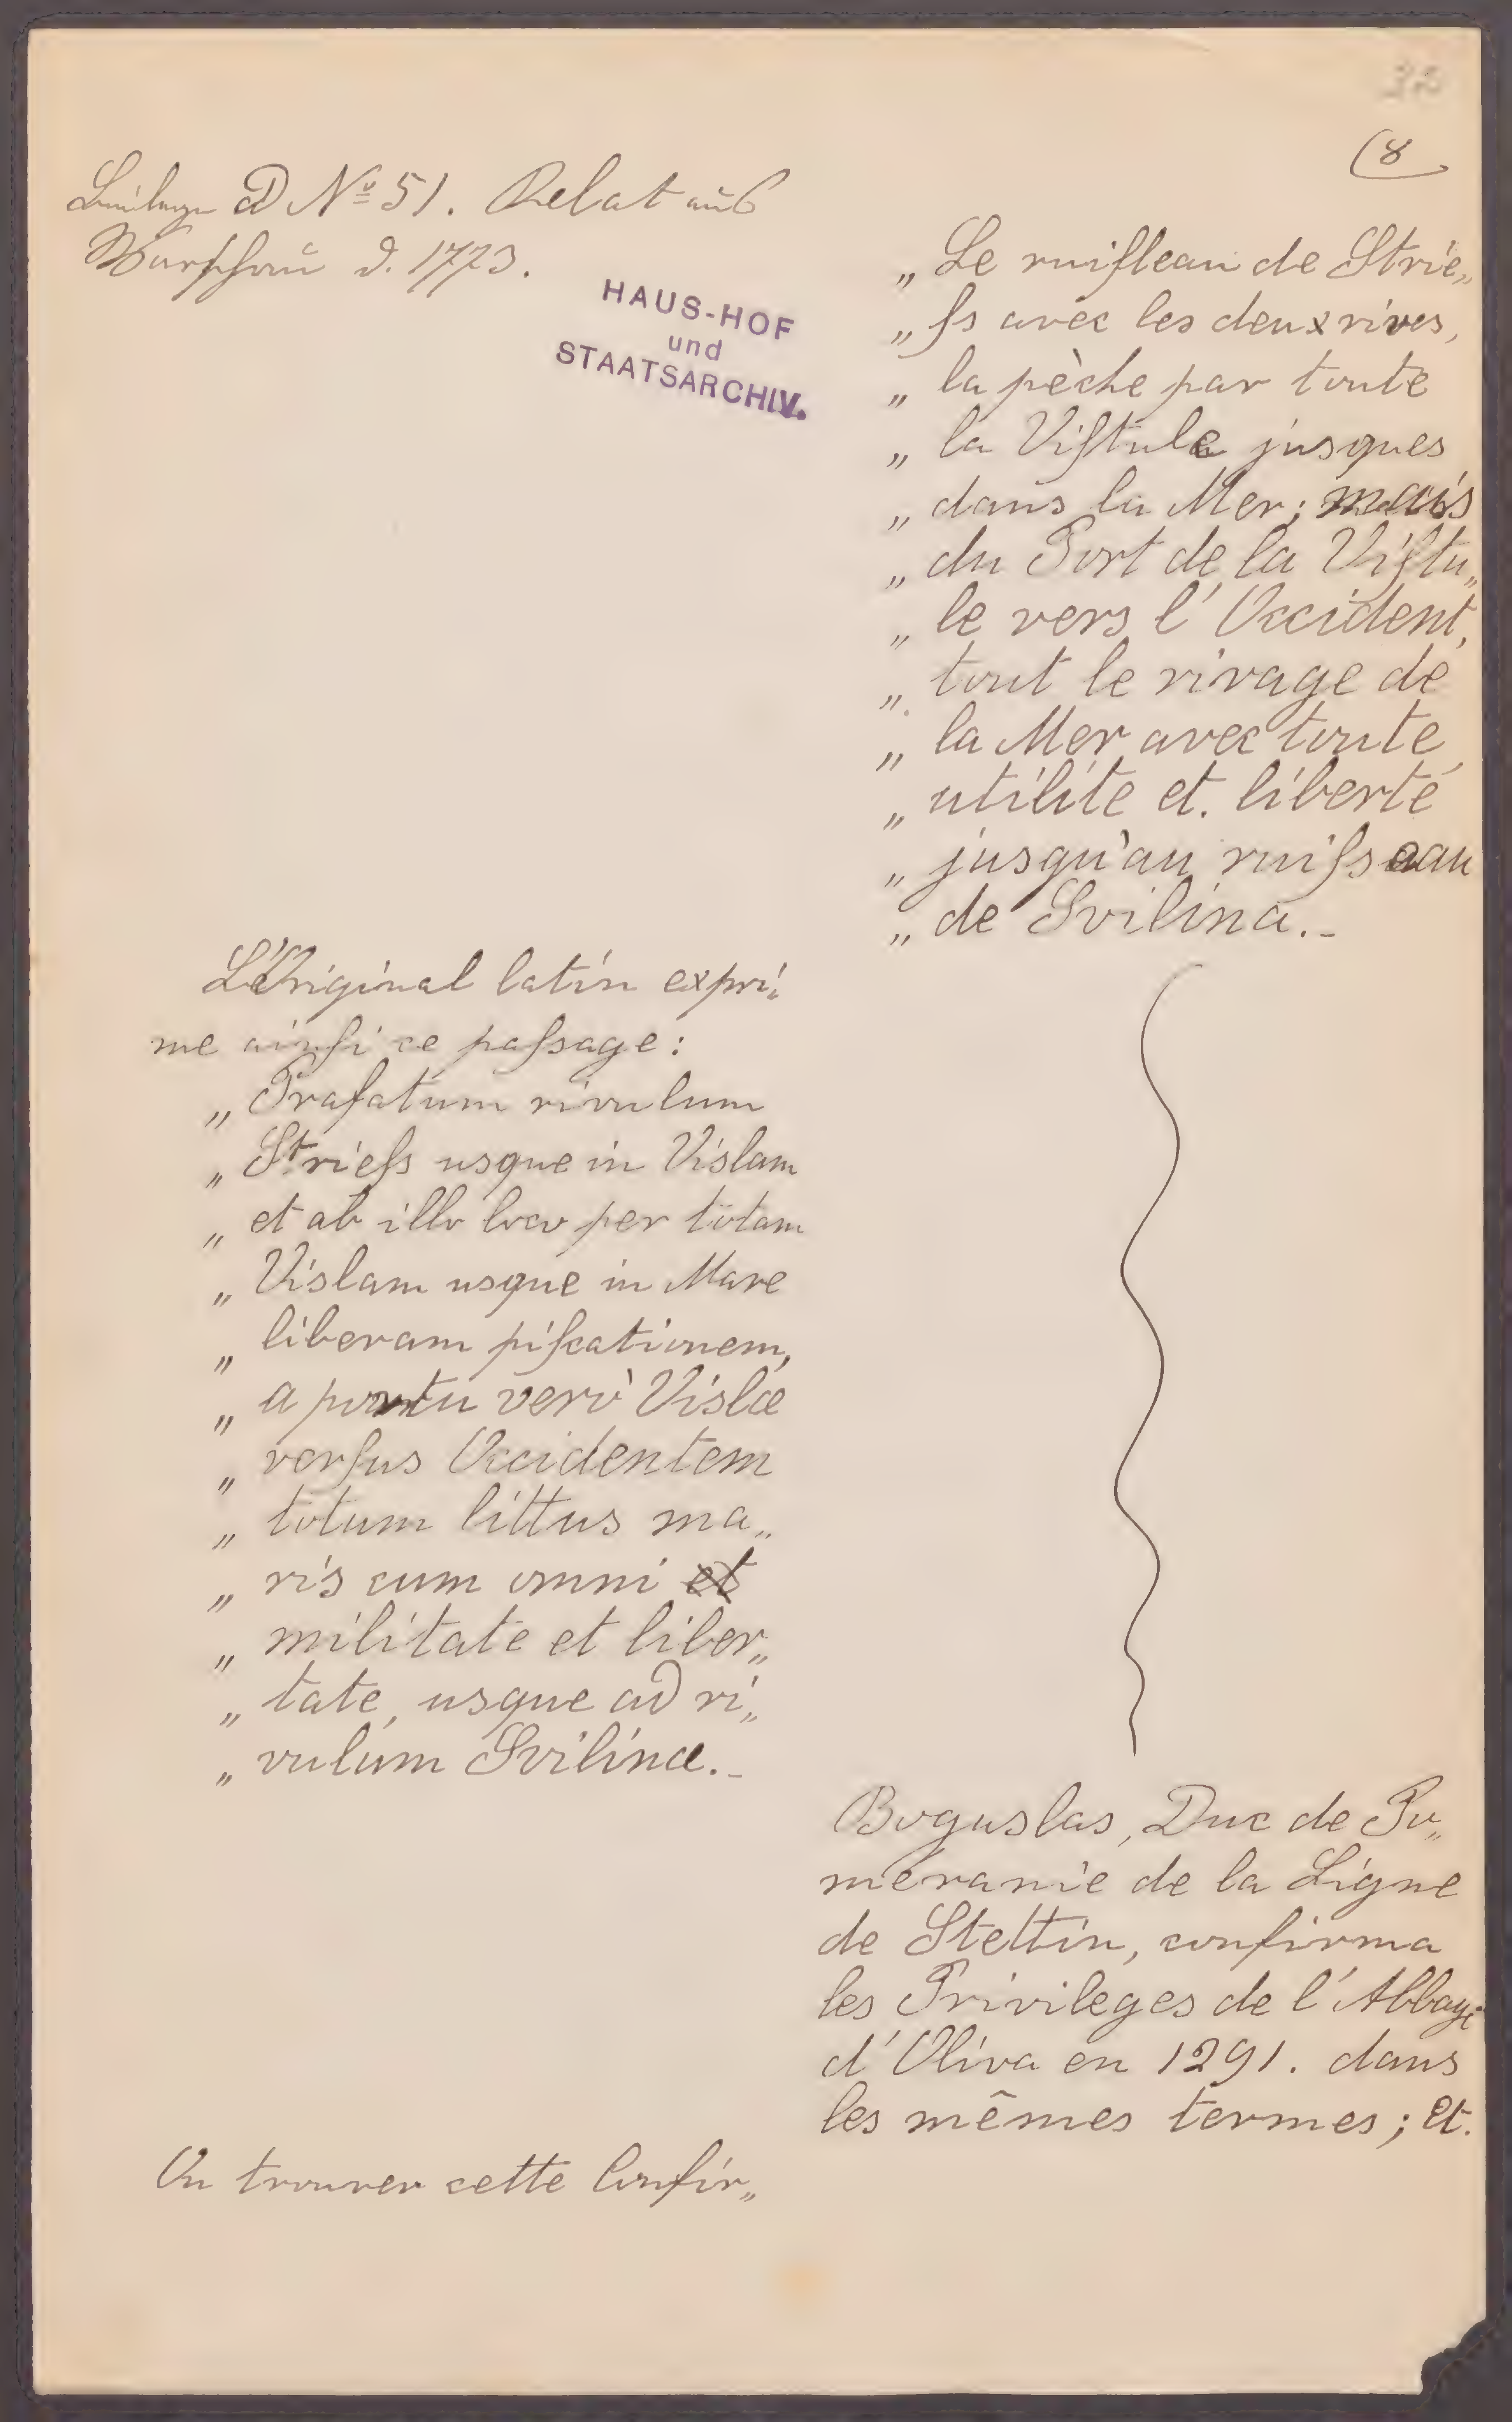 32
(8
Beilage D Nº 51. Relat aus
Warschau d. 1773.
HAUS-HOF
und
STAATSARCHIV.
„Le ruiſleau de Strie„
„ſs avec les deux rives,
„la pèche par toute
„la Viſtule jusques
„dans la Mer; mais
„du Port de la Viſtu„
„le vers l'Occident,
„tout le rivage de
„la Mer avec toute
„utilité et. liberté
„jusqu'au ruiſseau
„de Svilina._
L'Original latin expri„
me ainſi ce paſsage:
„Prafatum rivulum
„Strieſs usque in Vislam
„et ab illo loco per totam
„Vislam usque in Mare
„liberam piſcationem,
„a portu verò Vislæ
„verſus Occidentem
„totum littus ma„
„ris cum omni et
„militate et liber„
„tate, usque ad ri„
„vulum Svilinæ._
Boguslas, Duc de Po„
méranie de la Ligne
de Stettin, confirma
les Privileges de l'Abbaye
d'Oliva en 1291. dans
les mêmes termes; et.
On trouver cette Confir„